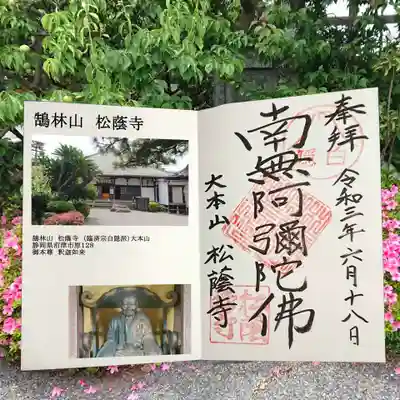 鵠林山 松蔭寺
鵠林山 松蔭寺 (臨済宗白隠派)大本山
静岡県沼津市原128
御本尊 釈迦如来
奉拝 令和三年六月十八日
南無阿彌陀佛
大本山 松蔭寺